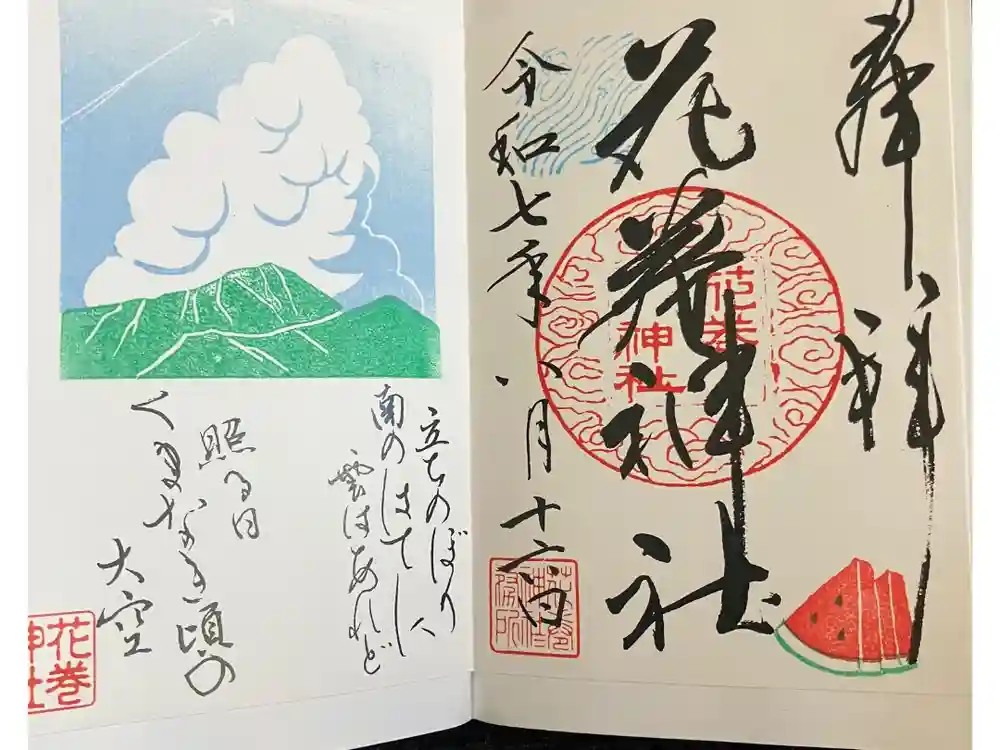 奉拝
花巻神社
花巻
神社
令和七年八月十六日
花巻
神社
務所
立ちのぼり
南のはてに
雲はあれど
照る日
くまなき頃の
大空
花巻
神社